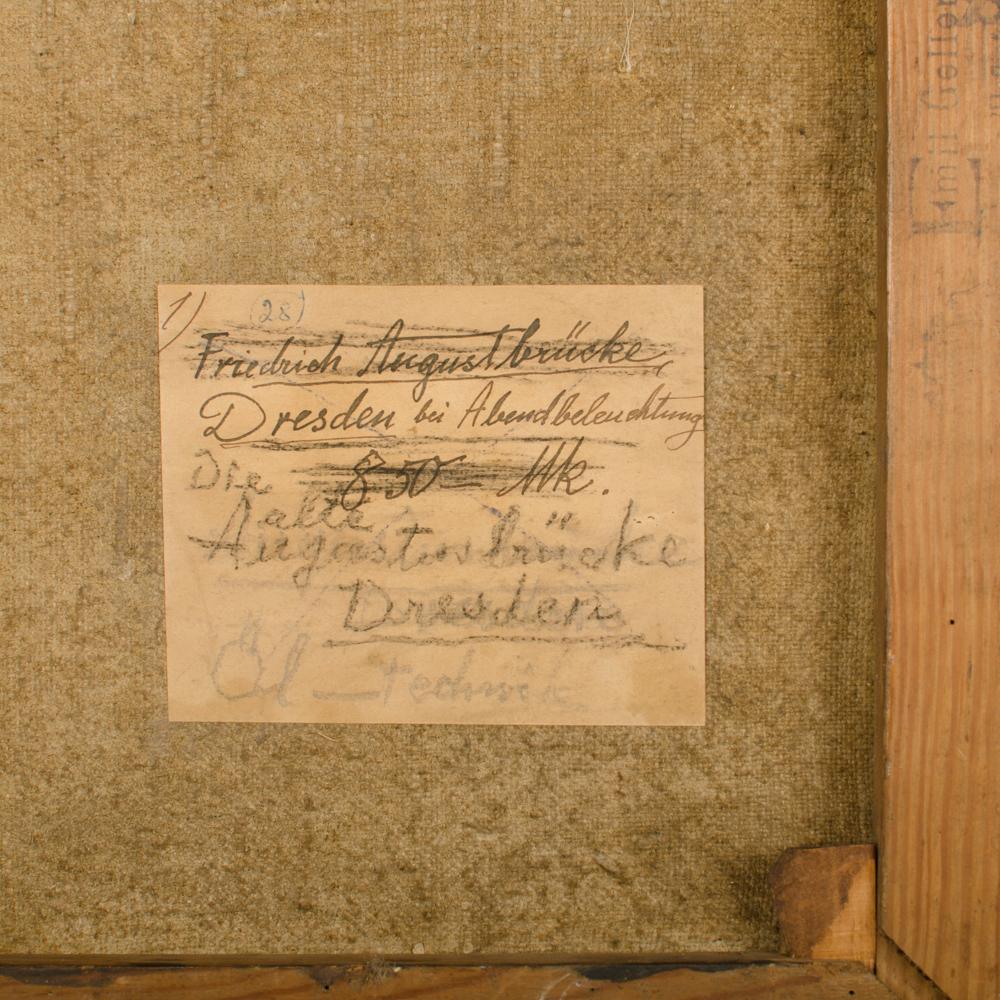 1) (28)
Friedrich Augustbrücke
Dresden bei Abendbeleuchtung
850 — Mk.
Die
alte
Augustusbrücke
Dresden
Öl — technik